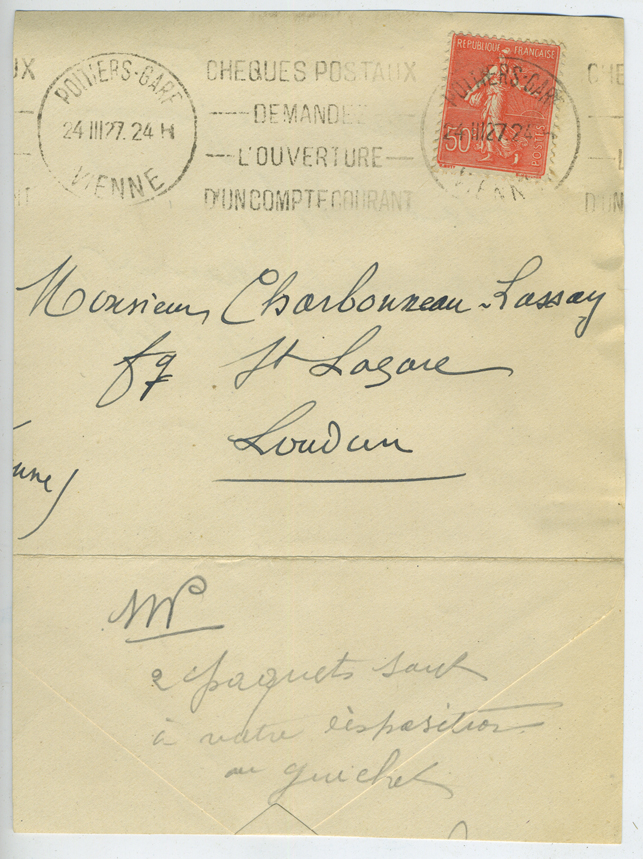 UX
POITIERS-GARE
24 III 27. 24 H
VIENNE
CHEQUES POSTAUX
DEMANDEZ
L'OUVERTURE
D'UN COMPTE COURANT
REPUBLIQUE FRANÇAISE
50
POSTES
POITIERS-GARE
24 III 27. 24
VIENN
CHE
L
D'UN
NT
Monsieur Charbonneau-Lassay
fg St Lazare
Loudun
enne)
2 paquets sont
à votre disposition
au guichet